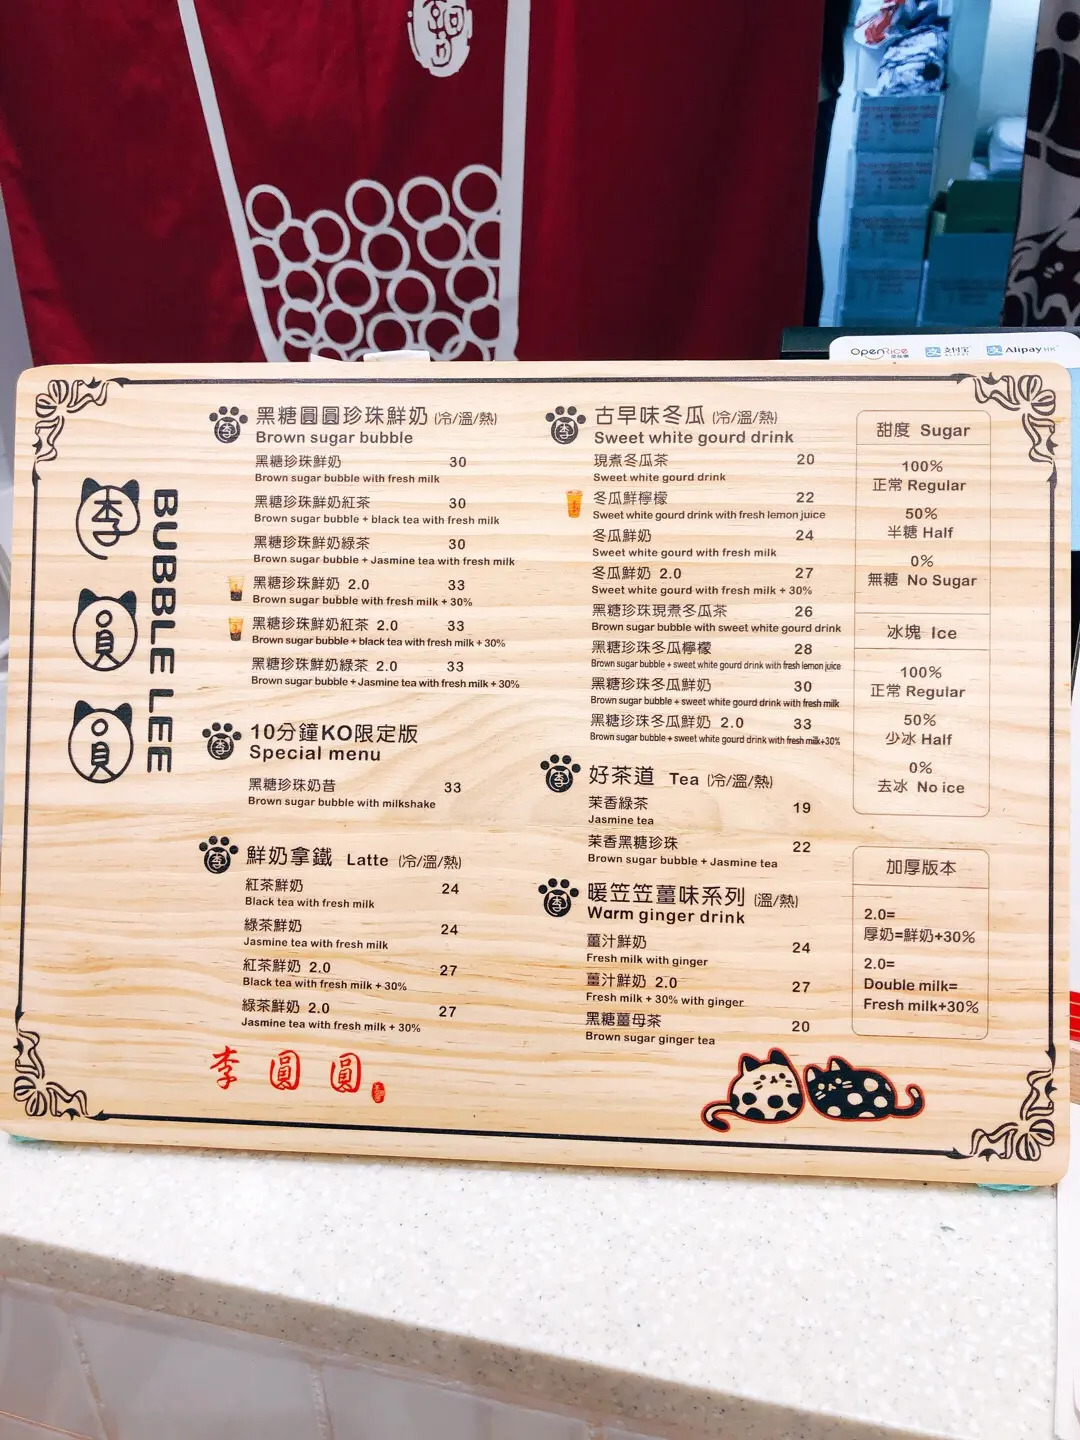 OpenRice
支付宝
ALIPAY
Alipay HK
李
圓
圓
BUBBLE LEE
黑糖圓圓珍珠鮮奶 (冷/溫/熱)
Brown sugar bubble
黑糖珍珠鮮奶 30
Brown sugar bubble with fresh milk
黑糖珍珠鮮奶紅茶 30
Brown sugar bubble + black tea with fresh milk
黑糖珍珠鮮奶綠茶 30
Brown sugar bubble + Jasmine tea with fresh milk
黑糖珍珠鮮奶 2.0 33
Brown sugar bubble with fresh milk + 30%
黑糖珍珠鮮奶紅茶 2.0 33
Brown sugar bubble + black tea with fresh milk + 30%
黑糖珍珠鮮奶綠茶 2.0 33
Brown sugar bubble + Jasmine tea with fresh milk + 30%
10分鐘KO限定版
Special menu
黑糖珍珠奶昔 33
Brown sugar bubble with milkshake
鮮奶拿鐵 Latte (冷/溫/熱)
紅茶鮮奶 24
Black tea with fresh milk
綠茶鮮奶 24
Jasmine tea with fresh milk
紅茶鮮奶 2.0 27
Black tea with fresh milk + 30%
綠茶鮮奶 2.0 27
Jasmine tea with fresh milk + 30%
李 圓 圓
古早味冬瓜 (冷/溫/熱)
Sweet white gourd drink
現煮冬瓜茶 20
Sweet white gourd drink
冬瓜鮮檸檬 22
Sweet white gourd drink with fresh lemon juice
冬瓜鮮奶 24
Sweet white gourd with fresh milk
冬瓜鮮奶 2.0 27
Sweet white gourd with fresh milk + 30%
黑糖珍珠現煮冬瓜茶 26
Brown sugar bubble with sweet white gourd drink
黑糖珍珠冬瓜檸檬 28
Brown sugar bubble + sweet white gourd drink with fresh lemon juice
黑糖珍珠冬瓜鮮奶 30
Brown sugar bubble + sweet white gourd drink with fresh milk
黑糖珍珠冬瓜鮮奶 2.0 33
Brown sugar bubble + sweet white gourd drink with fresh milk+30%
好茶道 Tea (冷/溫/熱)
茉香綠茶 19
Jasmine tea
茉香黑糖珍珠 22
Brown sugar bubble + Jasmine tea
暖笠笠薑味系列 (溫/熱)
Warm ginger drink
薑汁鮮奶 24
Fresh milk with ginger
薑汁鮮奶 2.0 27
Fresh milk + 30% with ginger
黑糖薑母茶 20
Brown sugar ginger tea
甜度 Sugar
100%
正常 Regular
50%
半糖 Half
0%
無糖 No Sugar
冰塊 Ice
100%
正常 Regular
50%
少冰 Half
0%
去冰 No ice
加厚版本
2.0=
厚奶=鮮奶+30%
2.0=
Double milk=
Fresh milk+30%